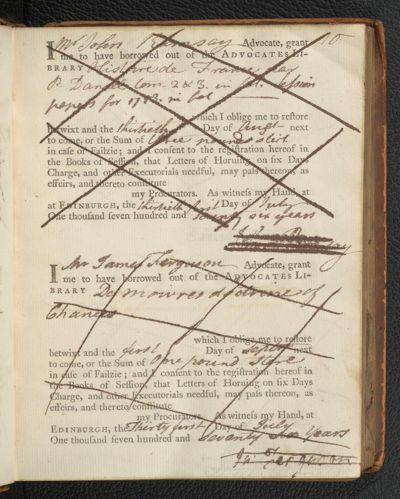 10
I Mr John Ramsay Advocate, grant
me to have borrowed out of the ADVOCATES LI-
BRARY Histoire de France par
P. Daniel tom. 2 & 3. in 4to. Session
papers for 1713. in fol
which I oblige me to restore
betwixt and the thirtieth Day of Augt next
to come, or the Sum of three pounds Ster
in case of Failzie; and I consent to the registration hereof in
the Books of Session, that Letters of Horning on six Days
Charge, and other Executorials needful, may pass thereon, as
effeirs, and thereto constitute
my Procurators. As witness my Hand, at
at EDINBURGH, the thirtieth Day of July
One thousand seven hundred and Seventy six years
I Mr James Ferguson Advocate, grant
me to have borrowed out of the ADVOCATES LI-
BRARY De Moivres doctrine of
Chances
which I oblige me to restore
betwixt and the first Day of Septr next
to come, or the Sum of One pound Ster
in case of Failzie; and I consent to the registration hereof in
the Books of Session, that Letters of Horning on six Days
Charge, and other Executorials needful, may pass thereon, as
effeirs, and thereto constitute
my Procurators. As witness my Hand, at
EDINBURGH, the Thirty first Day of July
One thousand seven hundred and Seventy Six Years
Ja: Ferguson